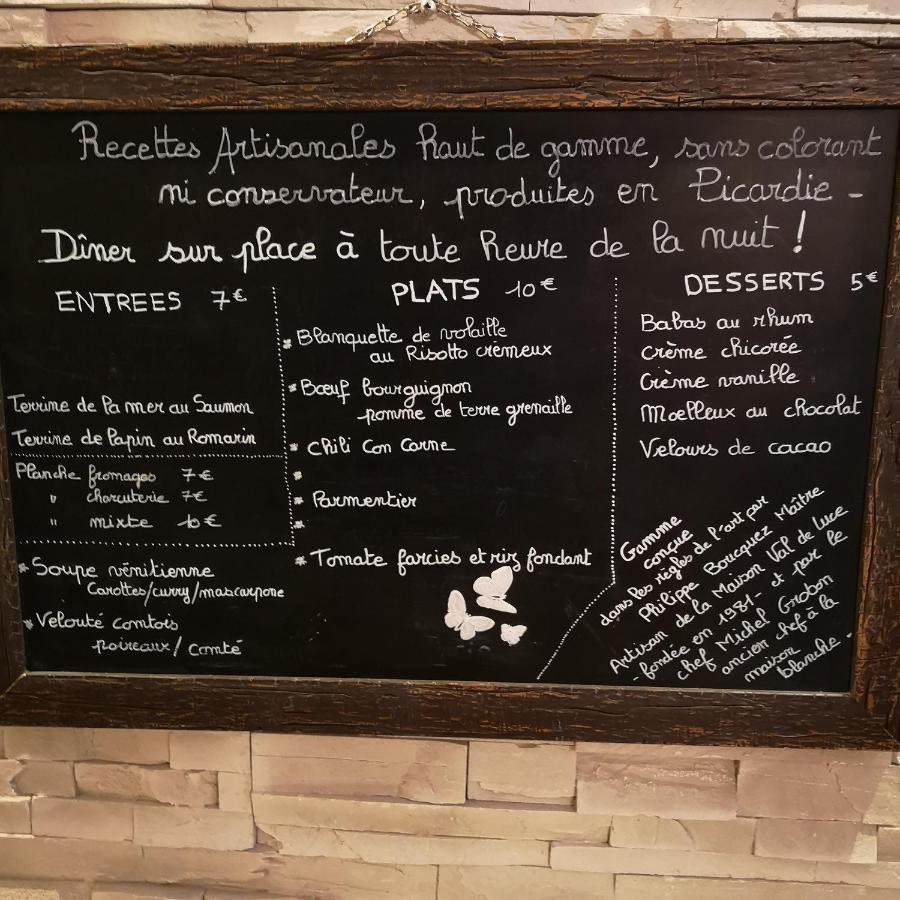 Recettes Artisanales haut de gamme, sans colorant
ni conservateur, produites en Picardie -
Dîner sur place à toute heure de la nuit !
ENTREES 7€
Terrine de la mer au Saumon
Terrine de lapin au Romarin
Planche fromages 7€
" charcuterie 7€
" mixte 10€
* Soupe vénitienne
Carottes/curry/mascarpone
* Velouté comtois
poireaux/Comté
PLATS 10€
* Blanquette de volaille
au Risotto crèmeux
* Bœuf bourguignon
pomme de terre grenaille
* Chili Con Carne
*
* Parmentier
*
* Tomate farcies et riz fondant
DESSERTS 5€
Babas au rhum
Crème chicorée
Crème vanille
Moelleux au chocolat
Velours de cacao
Gamme
conçue
dans les règles de l'art par
Philippe Boucquez Maître
Artisan de la Maison Val de luce
- fondée en 1981 - et par le
chef Michel Grobon
ancien chef à la
maison
blanche -